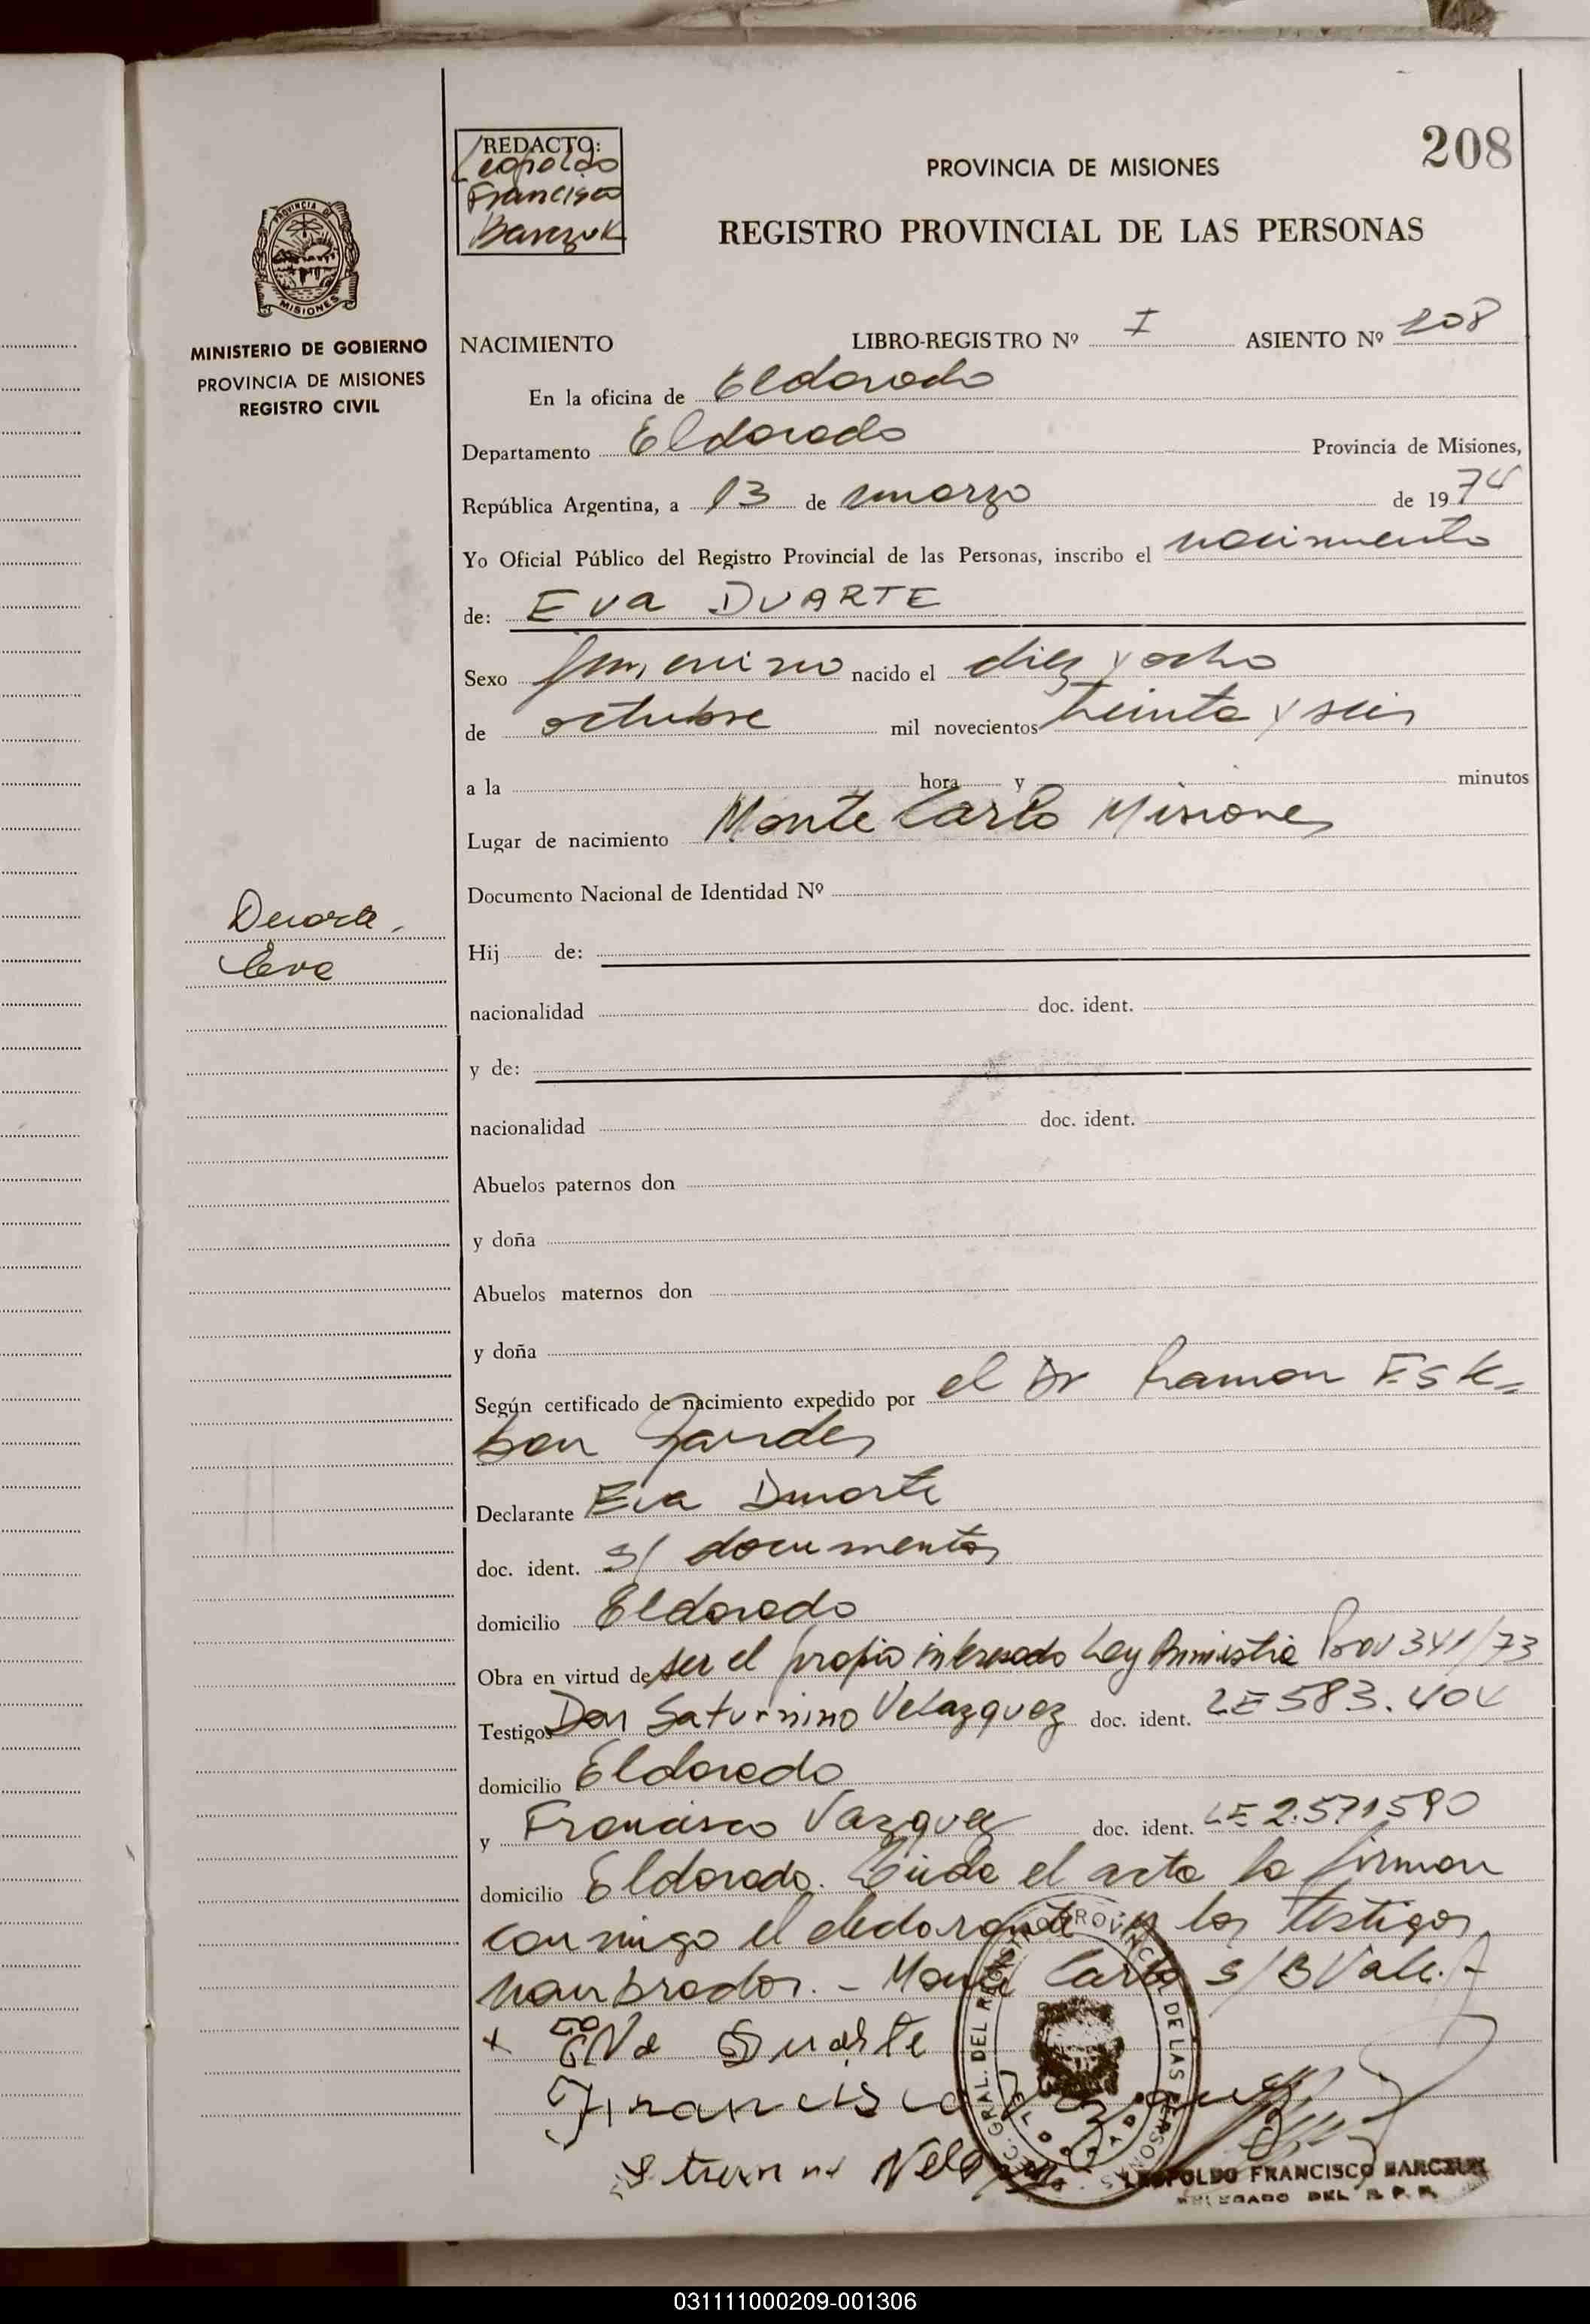 208
REDACTO:
Leopoldo
Francisco
Barczuk
PROVINCIA DE MISIONES
REGISTRO PROVINCIAL DE LAS PERSONAS
PROVINCIA DE
MISIONES
MINISTERIO DE GOBIERNO
PROVINCIA DE MISIONES
REGISTRO CIVIL
NACIMIENTO LIBRO-REGISTRO Nº I ASIENTO Nº 208
En la oficina de Eldorado
Departamento Eldorado Provincia de Misiones,
República Argentina, a 13 de marzo de 1974
Yo Oficial Público del Registro Provincial de las Personas, inscribo el nacimiento
de: Eva DUARTE
Sexo femenino nacido el diez y ocho
de octubre mil novecientos treinta y seis
a la hora y minutos
Lugar de nacimiento Monte Carlo Misiones
Documento Nacional de Identidad Nº
Duarte,
Eva
Hij de:
nacionalidad doc. ident.
y de:
nacionalidad doc. ident.
Abuelos paternos don
y doña
Abuelos maternos don
y doña
Según certificado de nacimiento expedido por el Dr Ramon Es
Declarante Eva Duarte
doc. ident. s/ documentos
domicilio Eldorado
Obra en virtud de ser el propio interesado Ley Amnistia Prov 341/73
Testigos Don Saturnino Velazquez doc. ident. LE 583.404
domicilio Eldorado
y Francisco Vazquez doc. ident. LE 2.571590
domicilio Eldorado. Leida el acta la firman
conmigo el declarante y los testigos
nombrados. - Monte Carlo s/B Vale.
x Eva Duarte
Francisco
LEOPOLDO FRANCISCO BARCZUK
DELEGADO DEL R. P. P.
DEL REGISTRO PROVINCIAL DE LAS PERSONAS
031111000209-001306